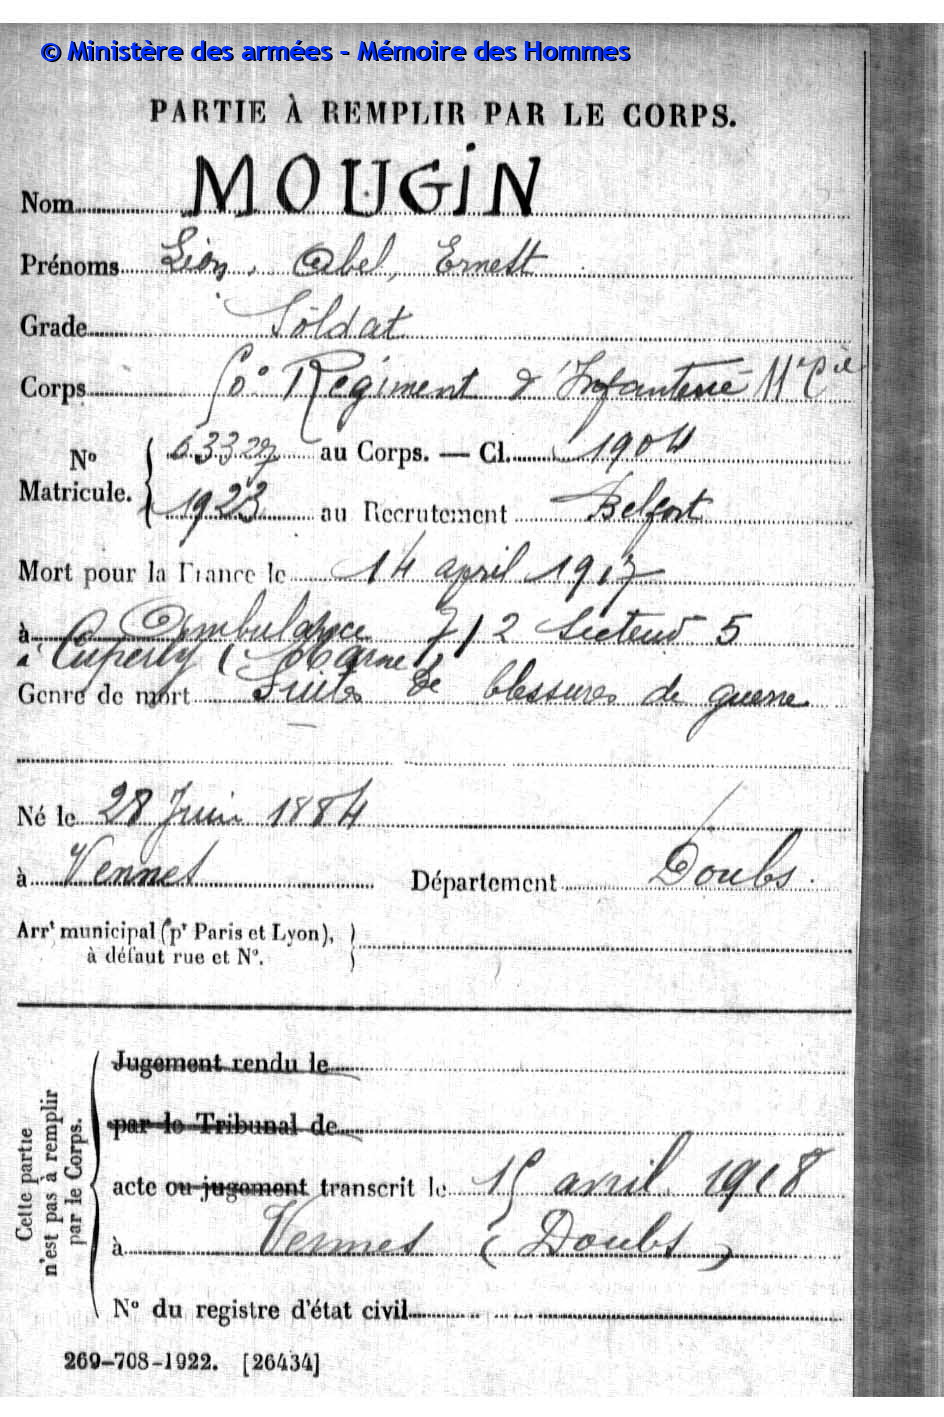 © Ministère des armées - Mémoire des Hommes
PARTIE À REMPLIR PAR LE CORPS.
Nom MOUGIN
Prénoms Léon, Abel, Ernest
Grade Soldat
Corps 60e Régiment d'Infanterie 11e Cie
No Matricule. 
au Corps. — Cl. 1904
1923 au Recrutement Belfort
Mort pour la France le 14 april 1917
à Ambulance 7/2 Secteur 5
à Cuperly (Marne)
Genre de mort Suites de blessures de guerre
Né le 28 Juin 1884
à Vennes Département Doubs
Arrt municipal (pr Paris et Lyon),
à défaut rue et No.
Cette partie
n'est pas à remplir
par le Corps.
Jugement rendu le
par le Tribunal de
acte ou jugement transcrit le 15 avril 1918
à Vennes (Doubs)
No du registre d'état civil
269-708-1922. [26434]